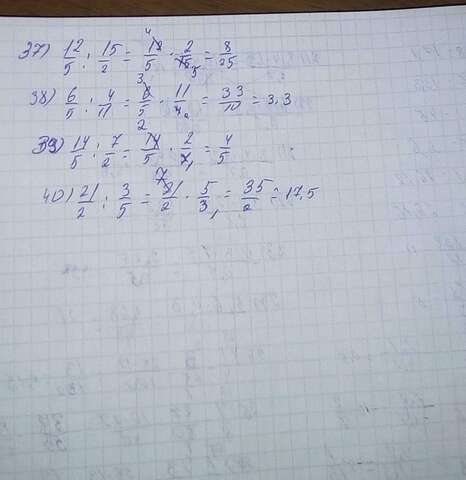 37) 12/5 : 15/2 = 12/5 · 2/15 = 8/25
38) 6/5 : 4/11 = 6/5 · 11/4 = 33/10 = 3,3
39) 14/5 : 7/2 = 14/5 · 2/7 = 4/5
40) 21/2 : 3/5 = 21/2 · 5/3 = 35/2 = 17,5